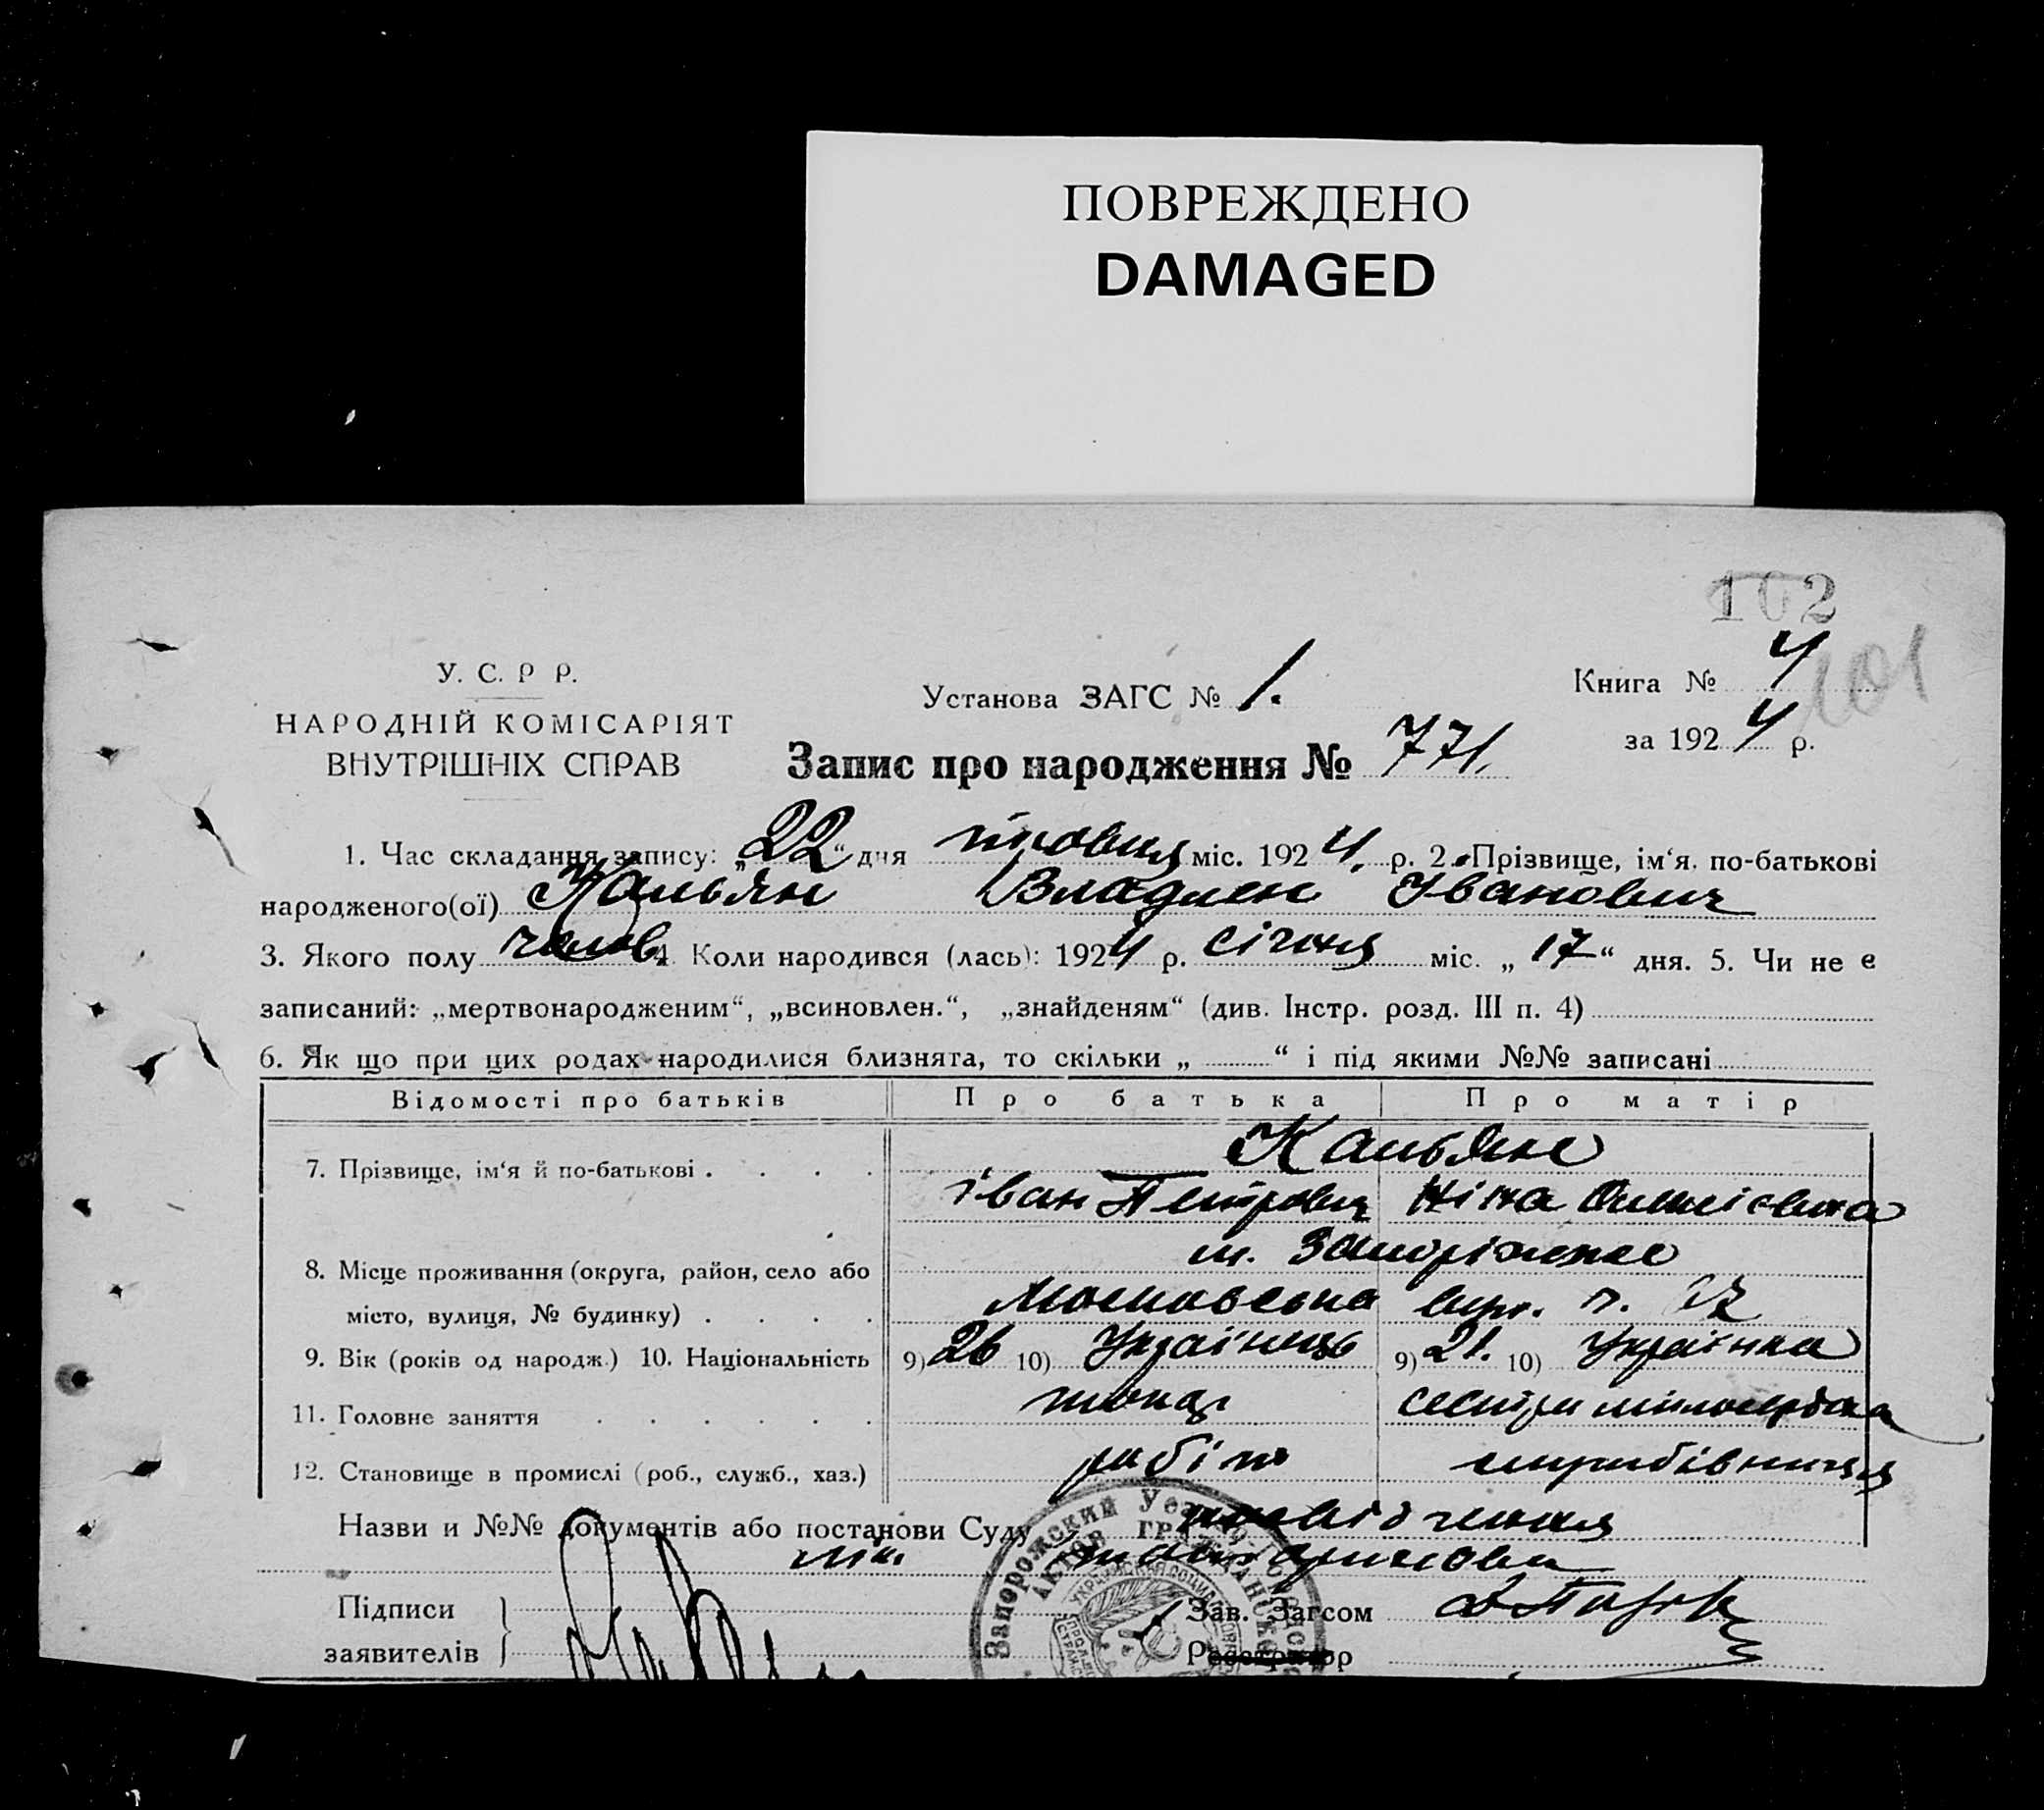 ПОВРЕЖДЕНО
DAMAGED
102
101
У. С. Р Р.
НАРОДНІЙ КОМІСАРІЯТ
ВНУТРІШНІХ СПРАВ
Установа ЗАГС № 1.
Книга № 4
за 1924 р.
Запис про народження № 771.
1. Час складання запису: „22“ дня травня міс. 1924. р. 2. Прізвище, ім‘я. по-батькові
народженого(ої) Кальян Владлен Іванович
3. Якого полу чолов. 4. Коли народився (лась): 1924 р. січня міс. „17“ дня. 5. Чи не є
записаний: „мертвонародженим“, „всиновлен.“, „знайденям“ (див. Інстр. розд. III п. 4)
6. Як що при цих родах народилися близнята, то скільки „ “ і під якими №№ записані
Відомості про батьків Про батька Про матір
7. Прізвище, ім‘я й по-батькові . . . .
Іван Петрович Ніна
м. Запоріжже
8. Місце проживання (округа, район, село або
місто, вулиця, № будинку) . . . . Московська вул.
9. Вік (років од народж.) 10. Національність 9) 26 10) Українець 9) 21. 10) Українка
11. Головне заняття . . . . . .
12. Становище в промислі (роб., служб., хаз.) робіт
Назви и №№ документів або постанови Суду посвідчення
Підписи
заявителів
Зав. Загсом
Реєстратор
Запорожский
АКТОВ ГРАЖДАНСКО